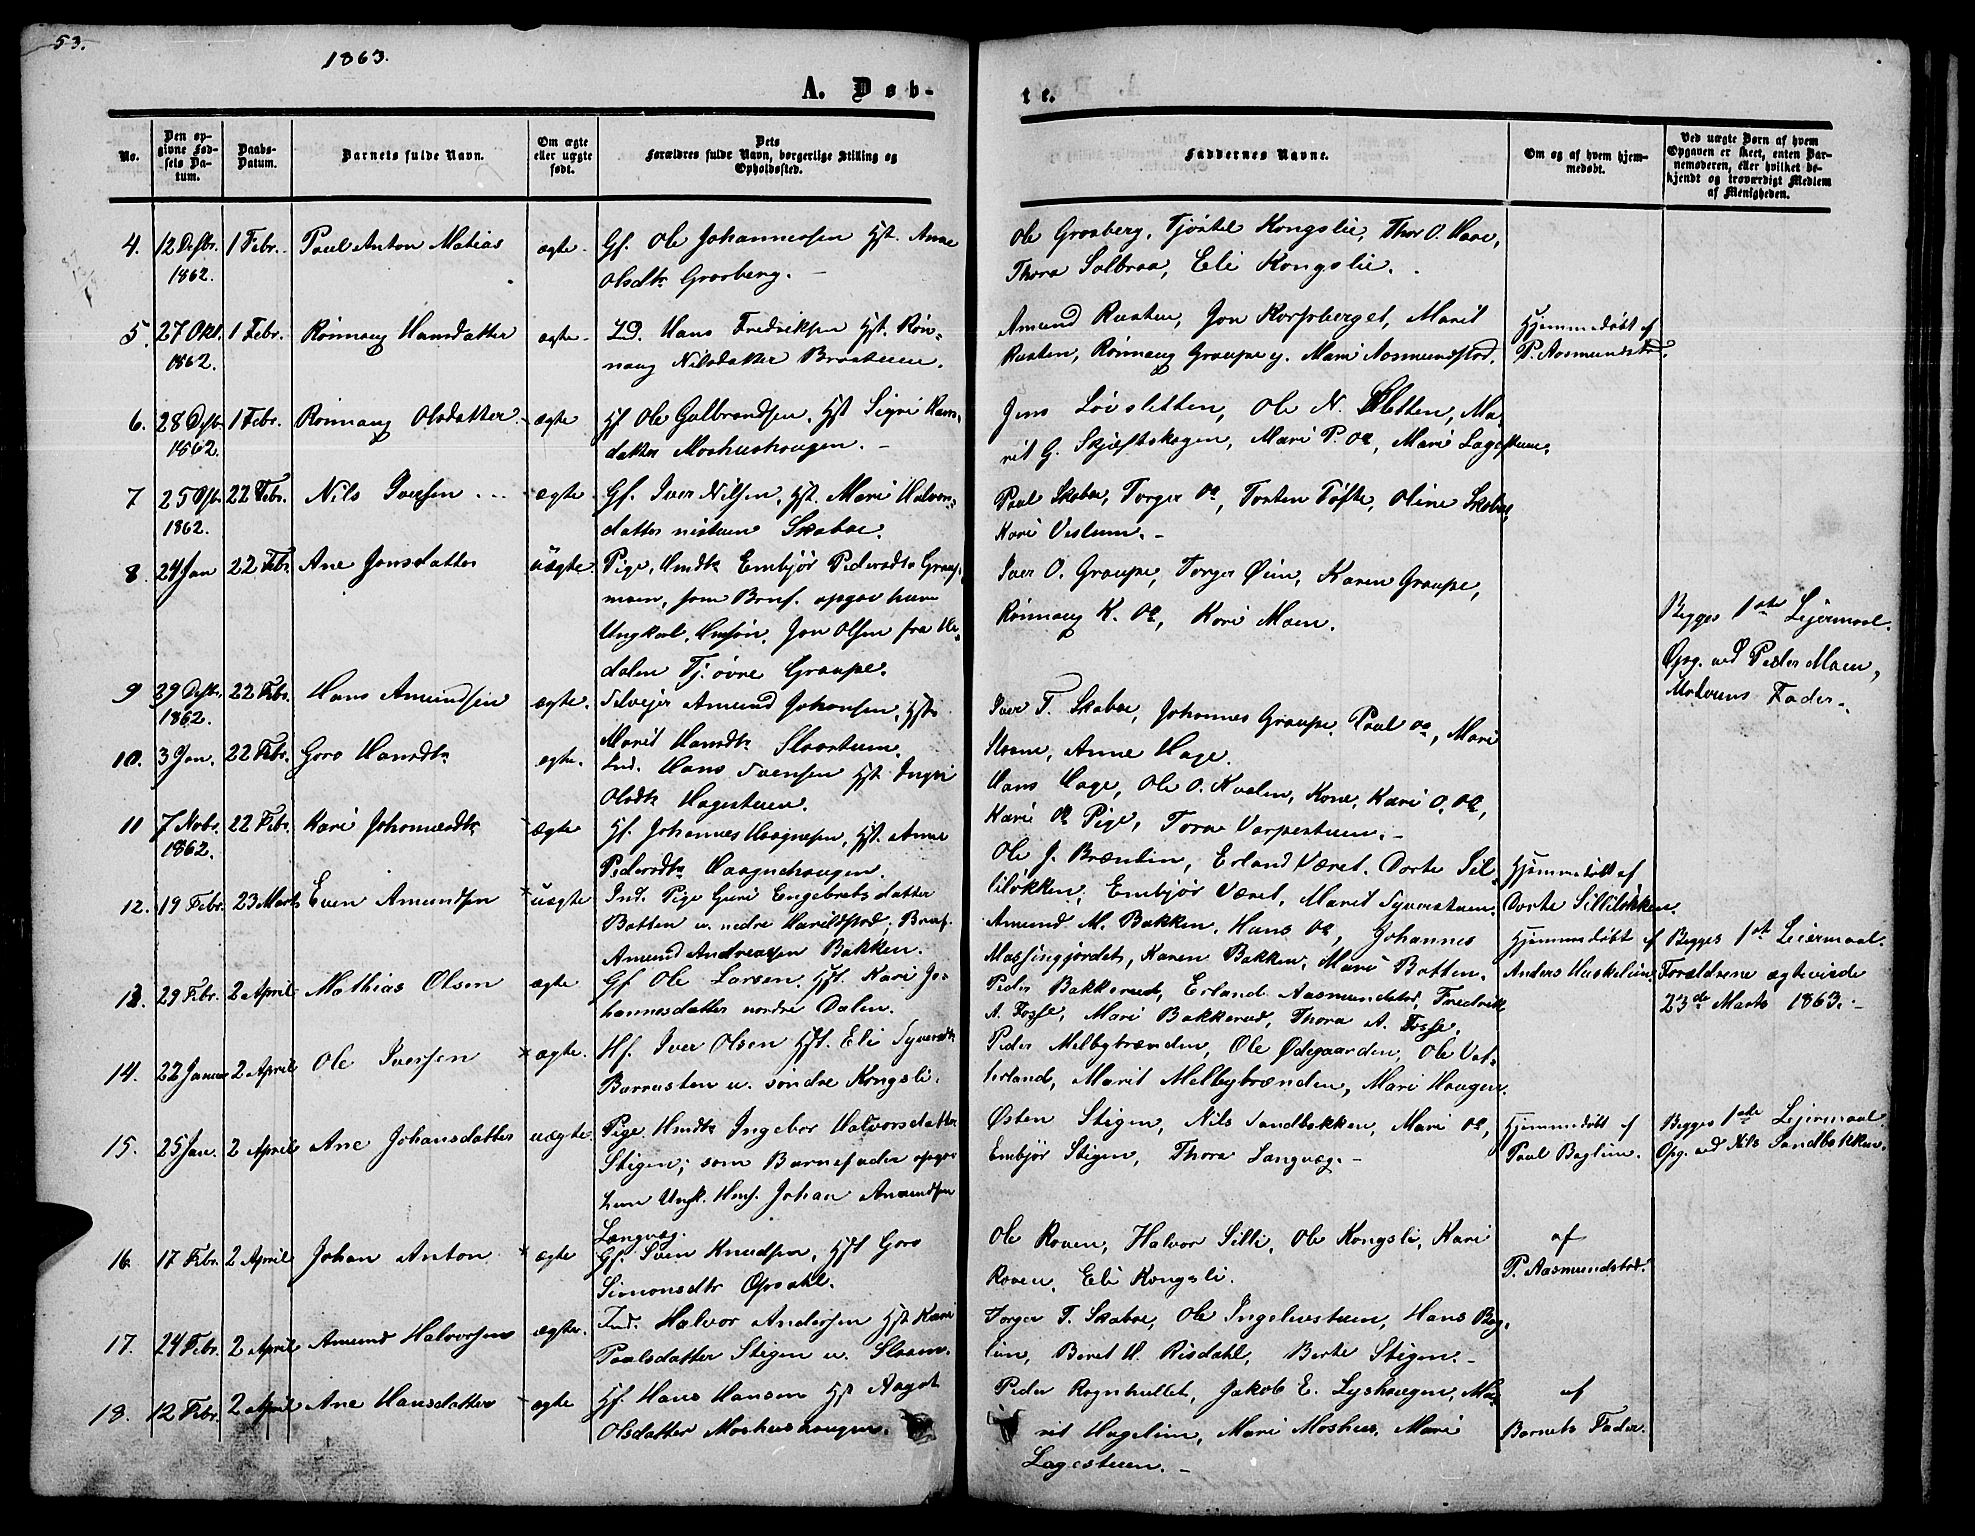 53.
1863.
A. Døb-
te.
No.
Den op-
givne Fød-
sels Da-
tum.
Daabs-
Datum.
Barnets fulde Navn.
Om ægte
eller uægte
født.
Dets
Forældres fulde Navn, borgerlige Stilling og
Opholdssted.
Faddernes Navne.
Om og af hvem hjem-
medøbt.
Ved uægte Børn af hvem
Opgaven er skeet, enten Bar-
nemoderen, eller hvilket be-
kjendt og troværdigt Medlem
af Menigheden.
4. 12 Desbr. 1 Febr. Paul Anton Matias ægte. Gf. Ole Johannessen Hst. Anne
1862. Olsdtr Graaberg.
Ole Graaberg, Tjøstel Kongslie, Thor O.
Thora Solbraa, Eli Kongslie.
5. 27 Okt. 1 Febr. Rønnaug Hansdatter ægte. Ind. Hans Fredriksen Hst. Røn-
1862. naug Nilsdatter Braastuen.
Amund Rusten, Jon Korpberget, Marit
Rusten, Rønnaug Graupe g. Mari Aasmundstad.
Hjemmedøbt af
P. Aasmundstad.
6. 28 Desb. 1 Febr. Rønnaug Olsdatter. ægte Hf Ole Gulbrandsen, Hst Sigri Hans-
1862. datter Moshushaugen.
Jens Løvsletten, Ole N. Sletten, Ma-
rit G. Skjeftskogen, Mari P. oa, Mari Lagestuen.
7 25 Dsb. 22 Febr. Nils Iversen ægte Gf. Iver Nilsen, Hst. Mari Halvors-
1862. datter nistuen Skaboe.
Paul Skaboe, Torger oa, Torsten Tofte, Oline Skaboe,
Kari Vistuen.
8. 24 Jan 22 Febr. Ane Jonsdatter uægte. Pige, Hmdtr Embjør Pedersdtr Graup-
moen, som Barnf. opgav hun
Ungkarl Hmsøn. Jon Olsen fra He-
dalen Tj. øvre Graupe.
Iver O. Graupe, Torger Øien, Karen Graupe,
Rønnaug K. oa, Kari Moen.
Begges 1ste Lejermaal.
Opg. ved Peder Moen,
Moderens Fader.
9 29 Desbr. 22 Febr. Hans Amundsen ægte. Selvejer Amund Johansen, Hst.
1862. Marit Hansdtr Slaastuen.
Iver T. Skaboe, Johannes Graupe, Paul oa, Mari
Sloam, Anne Hage.
10. 3 Jan. 22 Febr. Goro Hansdtr ægte. Ind. Hans Svensen Hst. Ingri
Olsdtr Hagestuen.
Hans Hage, Ole O. Kvalen, Kone, Kari O. oa,
Kari oa Pige, Tora Varpestuen.
11 7 Novbr. 22 Febr. Kari Johannesdtr ægte Hf. Johannes Haagnesen, Hst. Anne
1862. Pedersdtr Haagnehaugen.
Ole J. Brænlin, Erland Været, Dorte Sil-
liløkken, Embjør Været, Marit Syverstuen.
Hjemmedøbt af
Dorte Silliløkken.
12. 19 Febr. 23 Marts Even Amundsen uægte Ind. Pige Guri Engebretsdatter
Botten u. nedre Harildstad; Barnf.
Amund Andreassen Bakken.
Amund M. Bakken, Hans oa, Johannes
Massingjordet, Karen Bakken, Mari Botten.
Hjemmedøbt af
Anders Huskelien.
Begges 1st Leiermaal.
Forældrene ægteviede
23de Marts 1863.
13. 29 Febr. 2 April Mathias Olsen ægte Gf Ole Larsen, Hst. Kari Jo-
hannesdatter nordre Dalen.
Peder Bakkerud, Erland Aasmundstad, Fredrik
A. Fosse, Mari Bakkerud, Thora A. Fosse.
14. 22 Januar 2 April Ole Iversen ægte. Hf. Iver Olsen Hst. Eli Syversdtr
Barrusten u. søndre Kongsli.
Peder Melbybrænden, Ole Ødegaarden, Ole Vet-
terland, Marit Melbybrænden, Mari Haugen.
15. 25 Jan. 2 April Ane Johansdatter uægte. Pige Hmdtr Ingebor Halvorsdatter
Stigen; som Barnefader opgav
hun Ungk. Hmf. Johan Amundsen
Langvæg.
Østen Stigen, Nils Sandbakken, Mari oa,
Embjør Stigen, Thora Langvæg.
Hjemmedøbt af
Paul Baglien.
Begges 1ste Lejermaal
Opg. ved Nils Sandbakken.
16. 17 Febr. 2 April Johan Anton ægte Gf. Sven Knudsen, Hst Goro
Simonsdtr Opsahl.
Ole Roven, Halvor Silli, Ole Kongsli, Kari
Roven, Eli Kongsli.
af
P. Aasmundstad.
17. 24 Febr. 2 April Amund Halvorsen ægte. Ind. Halvor Andersen Hst Kari
Paalsdatter Stigen u. Sloam.
Torger T. Skaboe, Ole Ingelivstuen, Hans Bag-
lien, Beret H. Risdahl, Berte Stigen.
18. 12 Febr. 2 April Ane Hansdatter ægte Hf. Hans Hansen Hst Aagot
Olsdatter Moshushaugen.
Peder Rognhullet, Jakob E. Lyshaugen, Ma-
rit Hagelien, Mari Moshus, Mari
Lagestuen.
af
Barnets Fader.